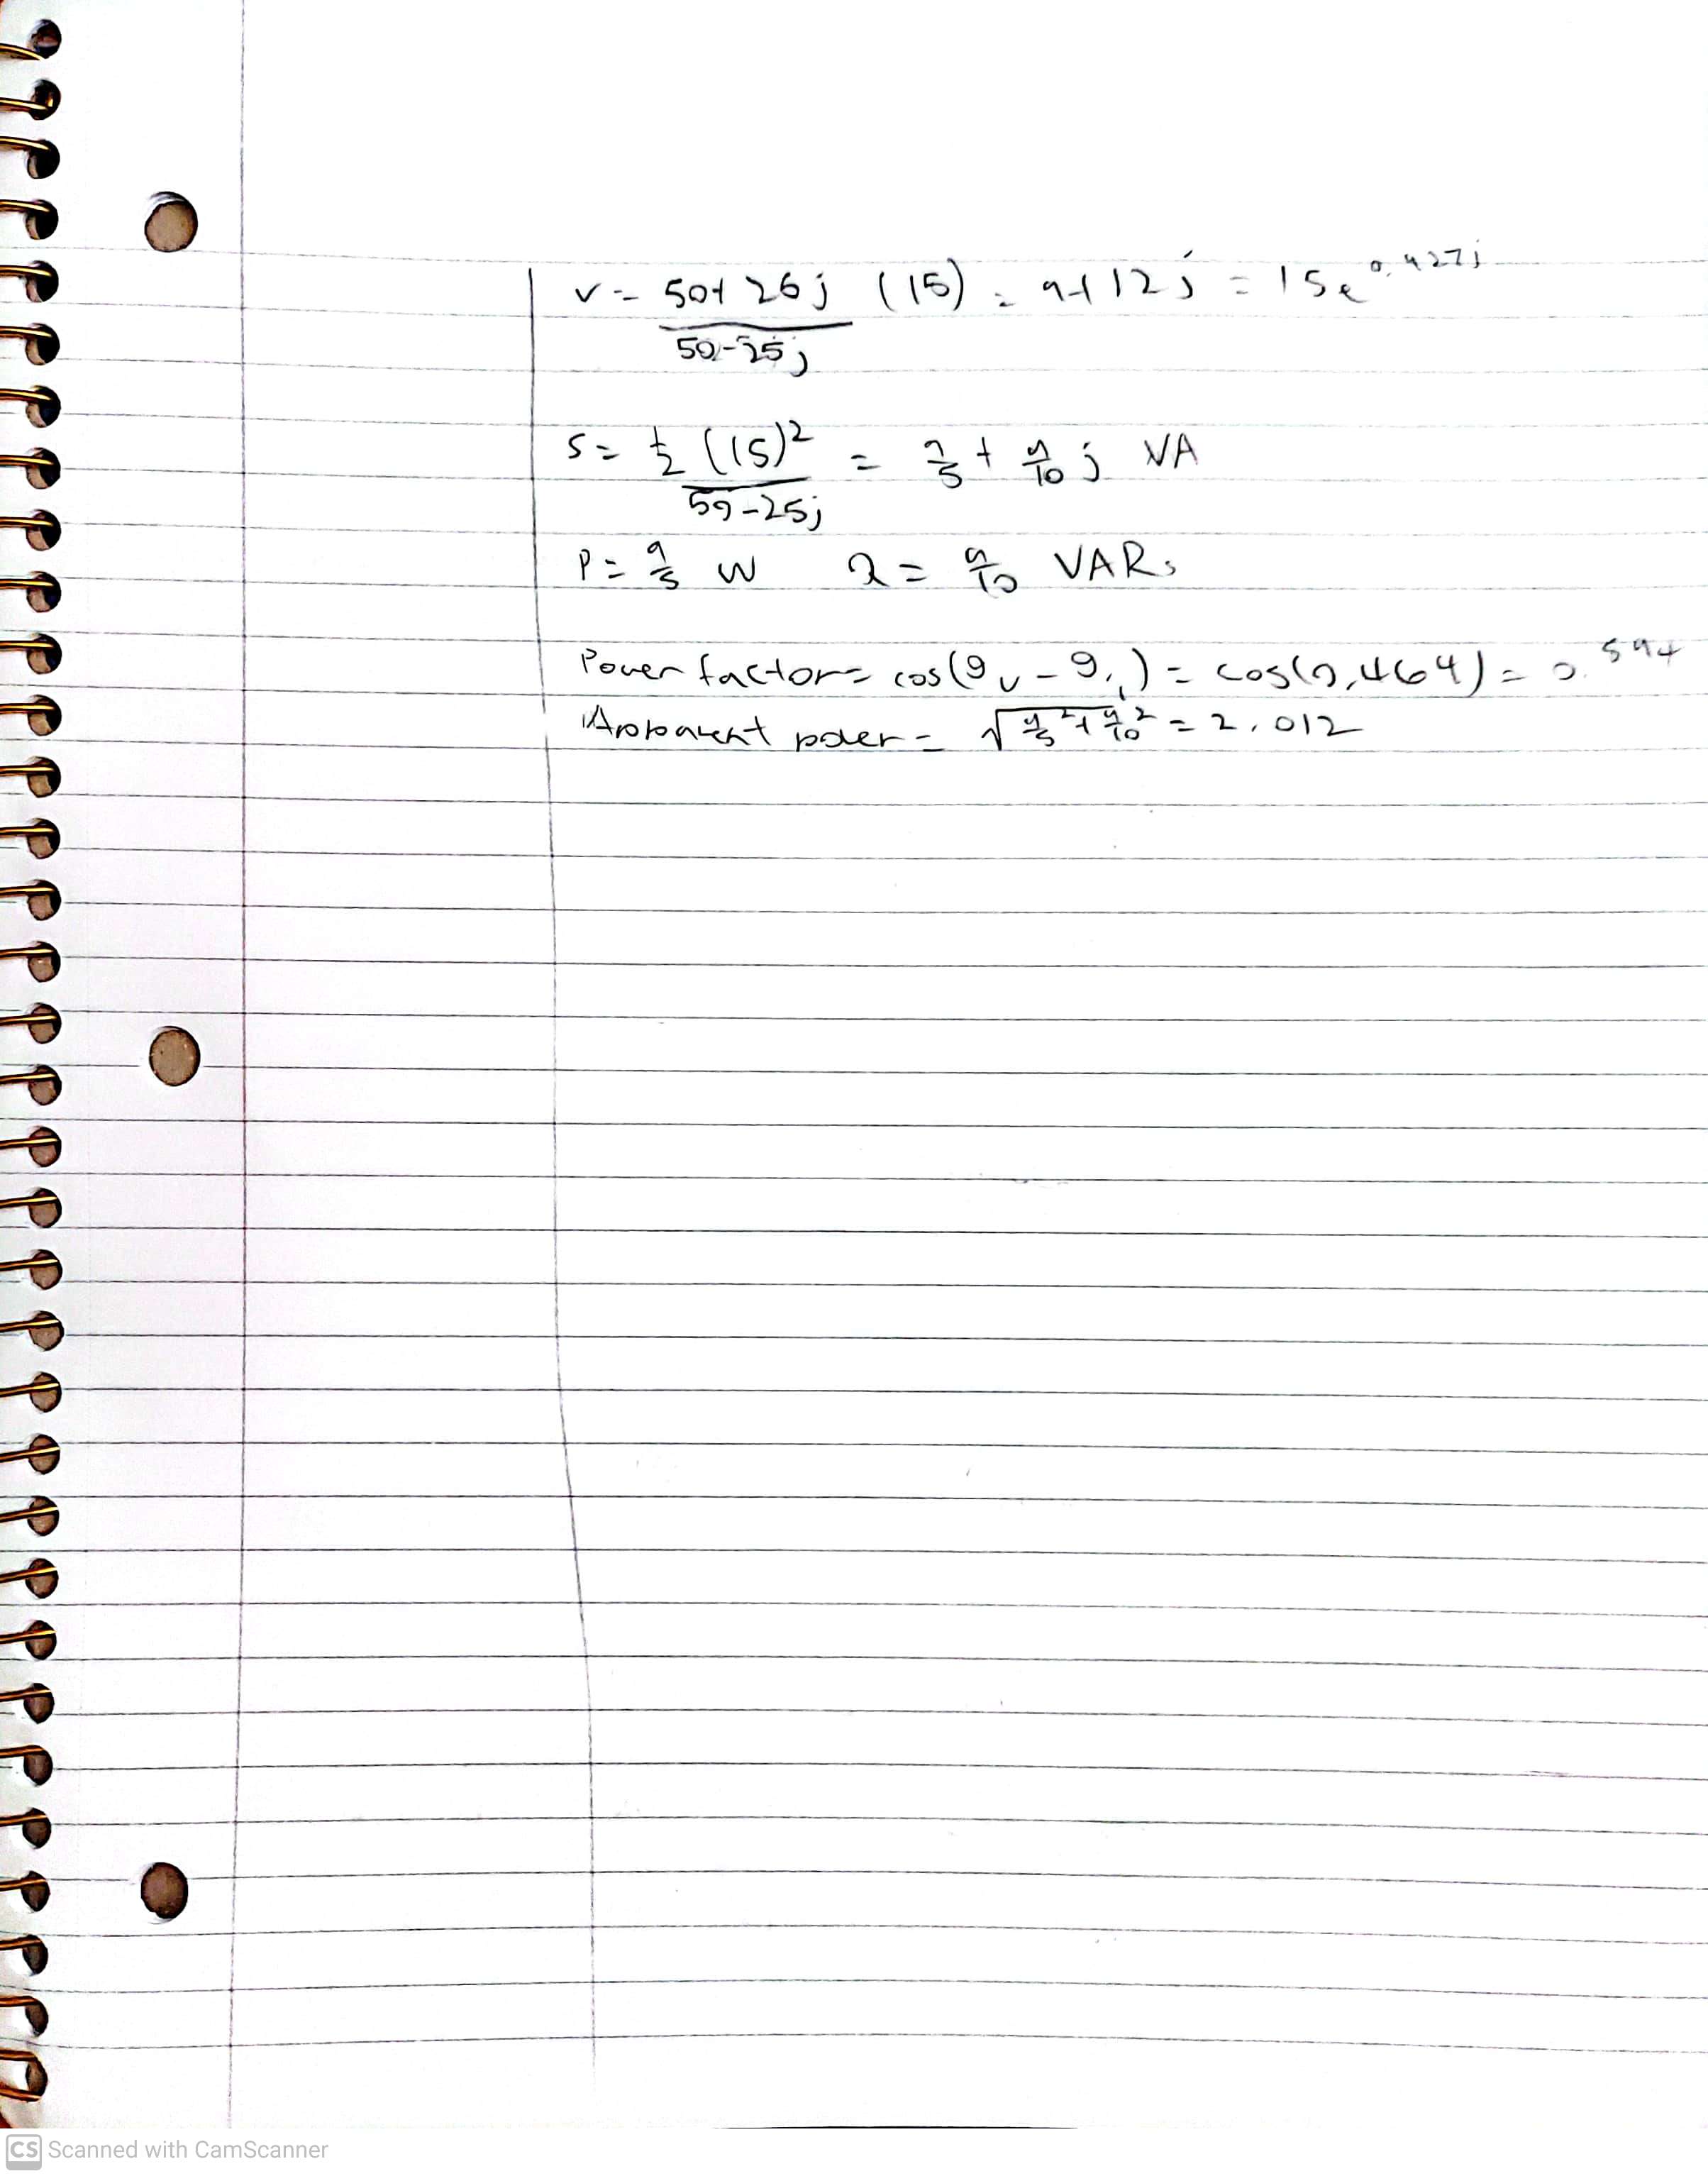 v = 50+26j (15) = 9+12j = 15e^0.927j
50-25j
S = 1/2 (15)² = 9/5 + 9/10 j VA
50-25j
P = 9/5 W Q = 9/10 VARs
Power factor = cos(θv - θi) = cos(0.464) = 0.894
Apparent power = √9/5² + 9/10² = 2.012
CS Scanned with CamScanner